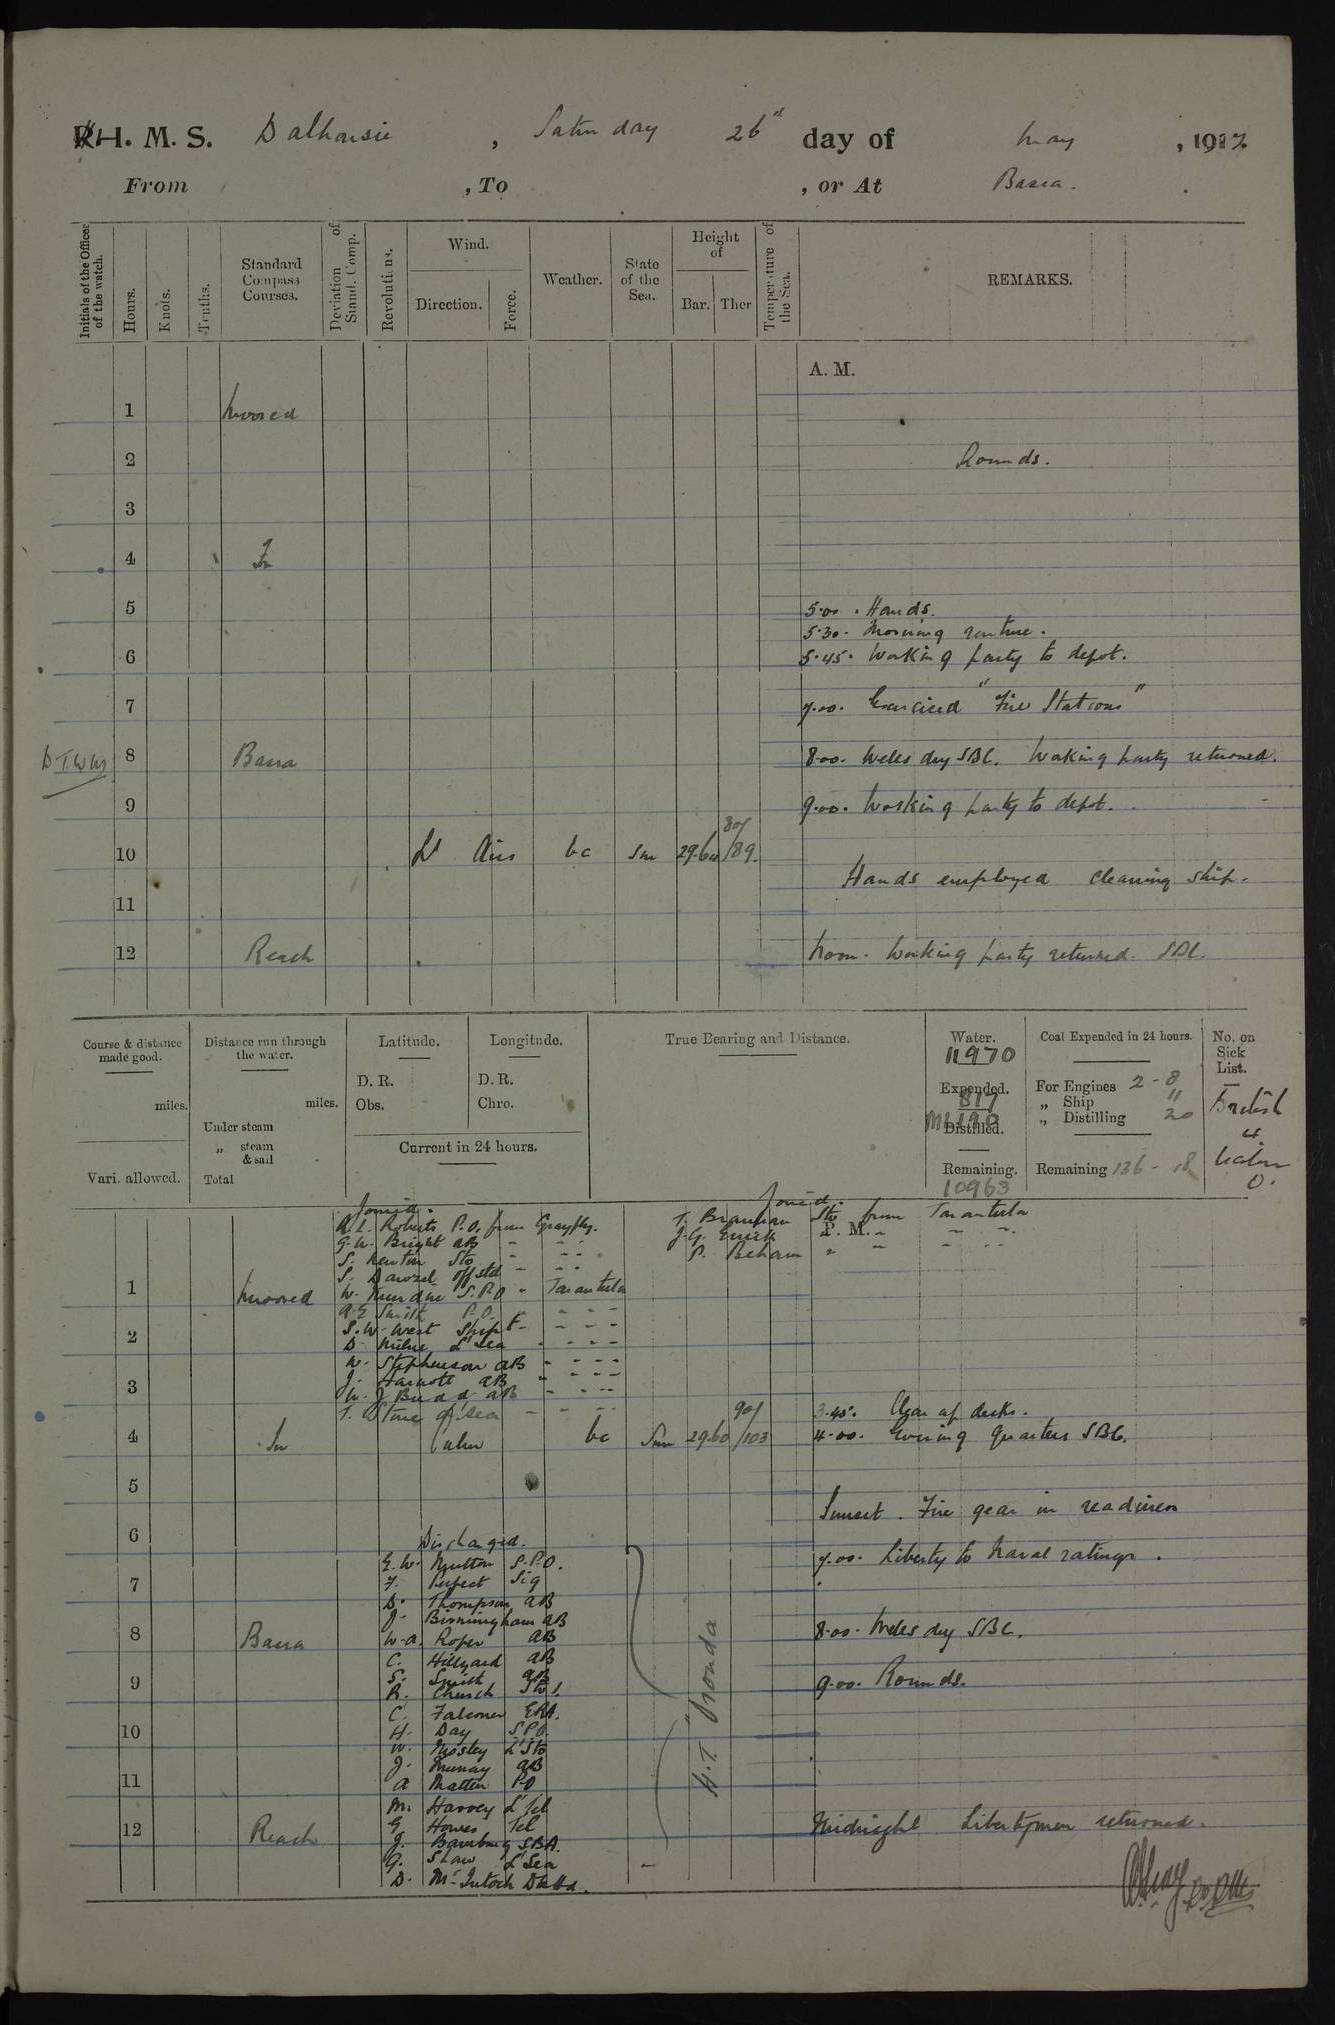 H. M. S. Dalhousie, Saturday 26th day of May, 1917
From , To , or At Basra.
Initials of the Officer of the watch.
Hours.
Knots.
Tenths.
Standard Compass Courses.
Deviation of Stand. Comp.
Revolutions.
Wind.
Direction.
Force.
Weather.
State of the Sea.
Height of
Bar.
Ther
Temperature of the Sea.
REMARKS.
A. M.
1 Moored
2 Rounds.
3
4 In
5 5.00. Hands.
5.30. Morning routine.
6 5.45. Working party to depot.
7 7.00. Exercised "Fire Stations"
8 Basra 8.00. Weles dry SBC. Working party returned.
9 9.00. Working party to depot.
10 Lt Airs bc Sm 29.60 80/89
Hands employed cleaning ship.
11
12 Reach Noon. Working party returned. SBC.
Course & distance made good.
miles.
Vari. allowed.
Distance run through the water.
miles.
Under steam
„ steam & sail
Total
Latitude.
D. R.
Obs.
Longitude.
D. R.
Chro.
Current in 24 hours.
True Bearing and Distance.
Water.
11970
Expended.
817
190
Distilled.
Remaining.
10963
Coal Expended in 24 hours.
For Engines 2 - 8
„ Ship "
„ Distilling 20
Remaining 136 - 18
No. on Sick List.
British
4
Native
0.
Joined.
A. L. Roberts P.O. from Grayfly.
G. W. Bright AB - - -
S. Newton Sto - - -
S. Off std - - -
W. S.P.O - Tarantula
A.E Smith P.O. - - -
S. W. West Shipt - - - -
D. Milne Ld Sea - - - -
W. Stephenson AB - - - -
J. AB - - - -
W. J Budd AB - - -
T. Stone Ld Sea - - - -
Joined.
T. Sto from Tarantula
P. M.
J. G. Quirk " - - - -
P. Beham " - - - -
1 Moored
2
3
3.45. Clear up decks.
4 In Calm bc Sm 29.60 90/103 4.00. Evening Quarters SBC.
5
Sunset. Fire gear in readiness
6
7.00. Liberty to Naval ratings.
7
8 Basra 8.00. Weles dry SBC.
9 9.00. Rounds.
10
11
12 Reach Midnight Libertymen returned.
Discharged.
E. W. Mutton S.P.O.
F. Perfect Sig
D. Thompson AB
J. Birmingham AB
W. A. Roper AB
C. Hillyard AB
S. Smith AB
R. Church
C. Falconer ERA.
H. Day S.P.O.
W. Mosley Ld Sto
J. Murray AB
A Matten PO
M. Harvey Ld Tel
G Howes Tel
J. SBA
G. Shaw Ld Sea
D. McIntosh
H.T.